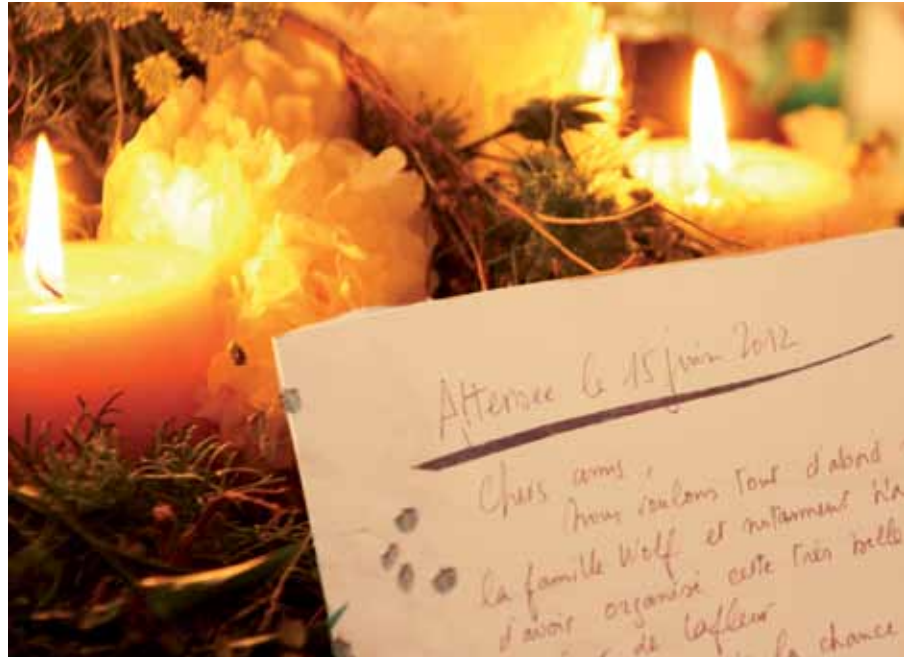 Attersee le 15 juin 2012
Chers amis,
Nous voulons tout d'abord
la famille Wolf et notamment
d'avoir organisé cette très belle
de Lafleur
la chance